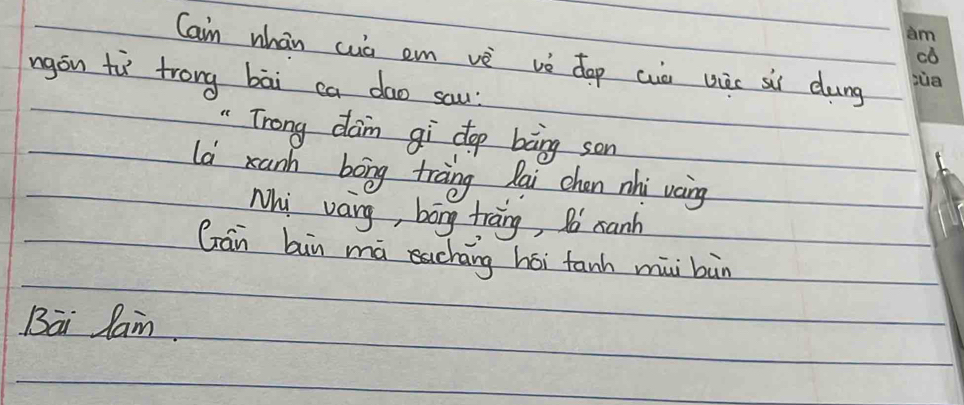 Cảm nhận của em về vẻ đẹp của việc sử dụng
ngôn từ trong bài ca dao sau:
"Trong đầm gì đẹp bằng sen
Lá xanh bông trắng lại chen nhị vàng
Nhị vàng, bông trắng, lá xanh
Gần bùn mà chẳng hôi tanh mùi bùn
Bài làm.
àm
cỏ
của